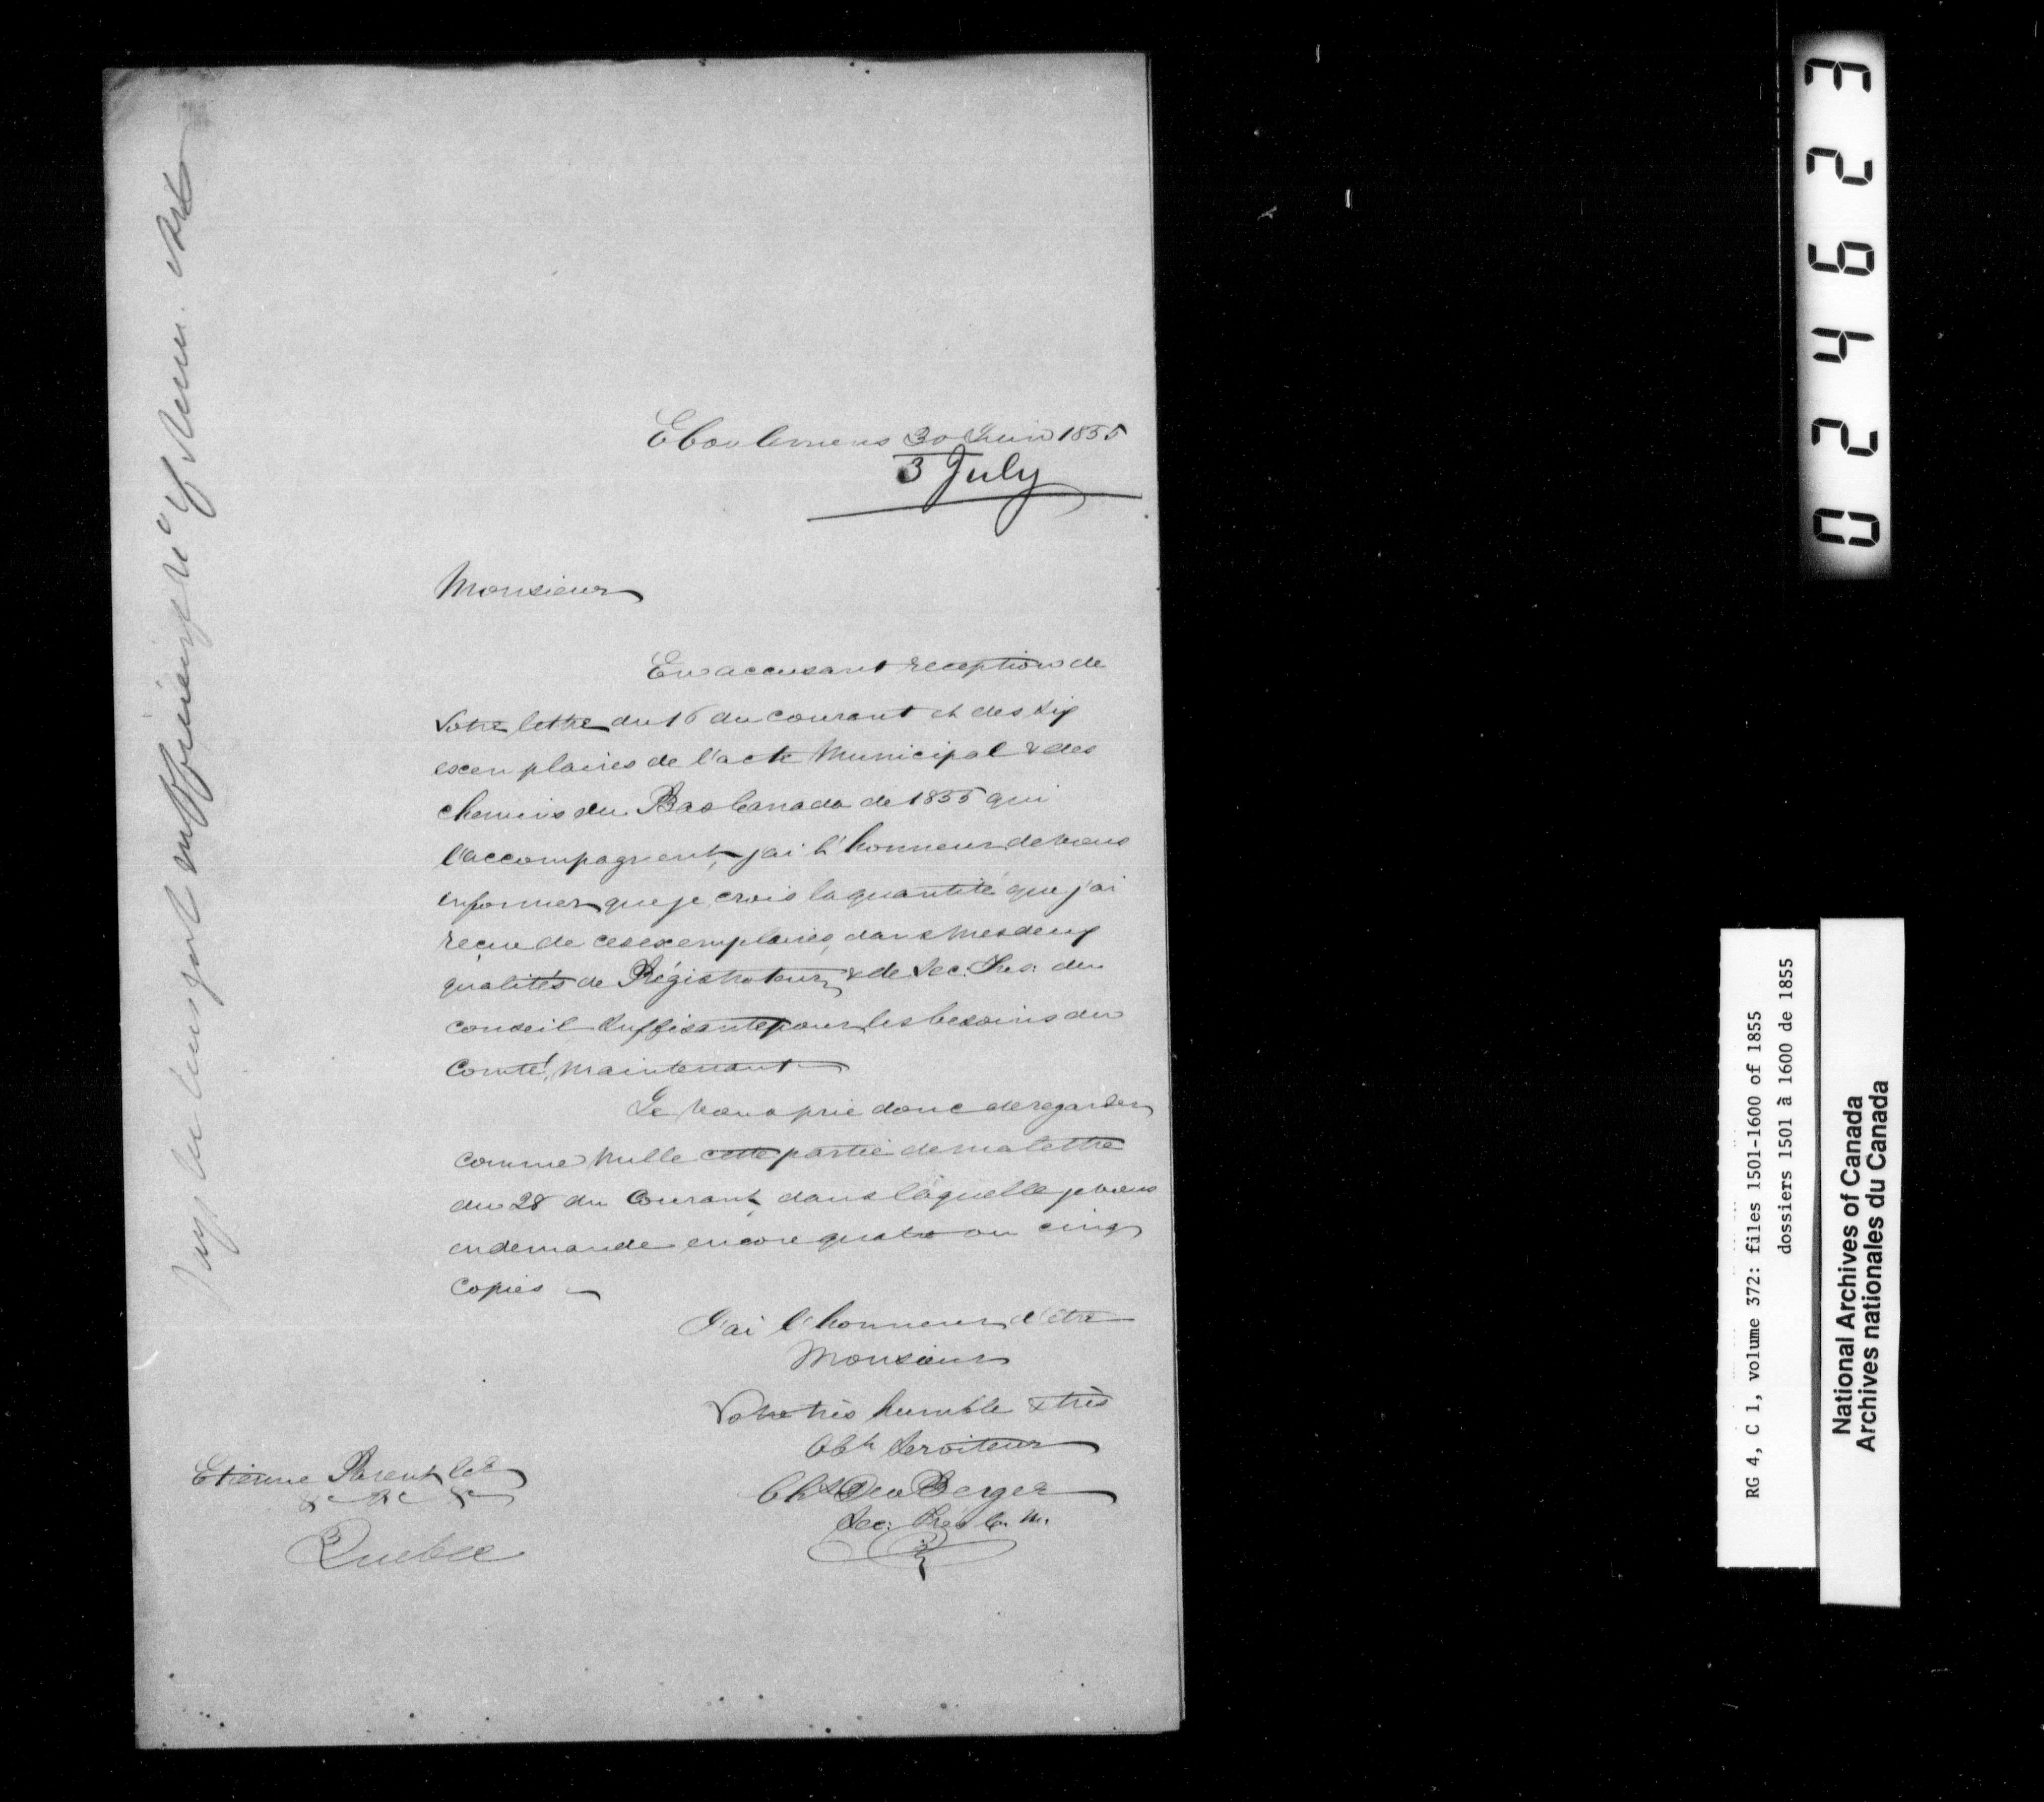 Eboulemens 30 Juin 1855
3 July
Monsieur
En accusant reception de
Votre lettre du 16 du courant et des six
exemplaires de l'acte Municipal & des
chemins du Bas Canada de 1855 qui
l'accompagnent, j'ai l'honneur de vous
informer que je crois la quantité que j'ai
reçue de ces exemplaires, dans mes deux
qualités de Régistrateur & de Sec: Tres: du
conseil suffisante pour les besoins du
Comté, maintenant
Je vous prie donc de regarder
comme nulle cette partie de ma lettre
du 28 du Courant, dans laquelle je vous
en demande encore quatre ou cinq
copies
J'ai l'honneur d'être
Monsieur
Votre très humble & très
Obt Serviteur
Chs Du Berger
Sec: Trés C. M.
Etienne Parent
&c &c &c
Quebec
of Mun. Acts
024623
RG 4, C 1, volume 372: files 1501-1600 of 1855
dossiers 1501 à 1600 de 1855
National Archives of Canada
Archives nationales du Canada